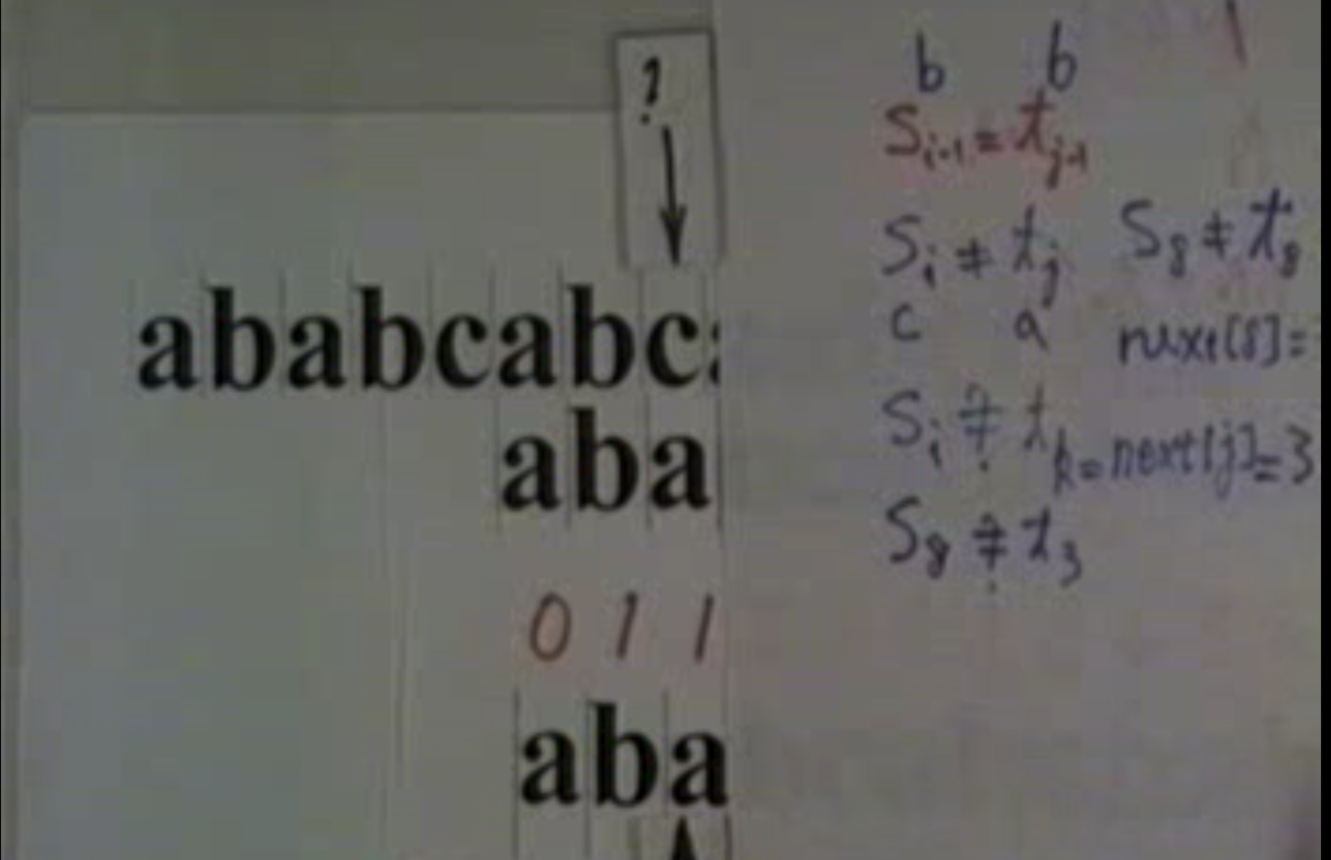 ?
ababcabca
aba
0 1 1
aba
b b
S_{i-1} = t_{j-1}
S_i ≠ t_j S_8 ≠ t_8
c a next[8]=
S_i ≠? t_{k=next[j]=3}
S_8 ≠? t_3